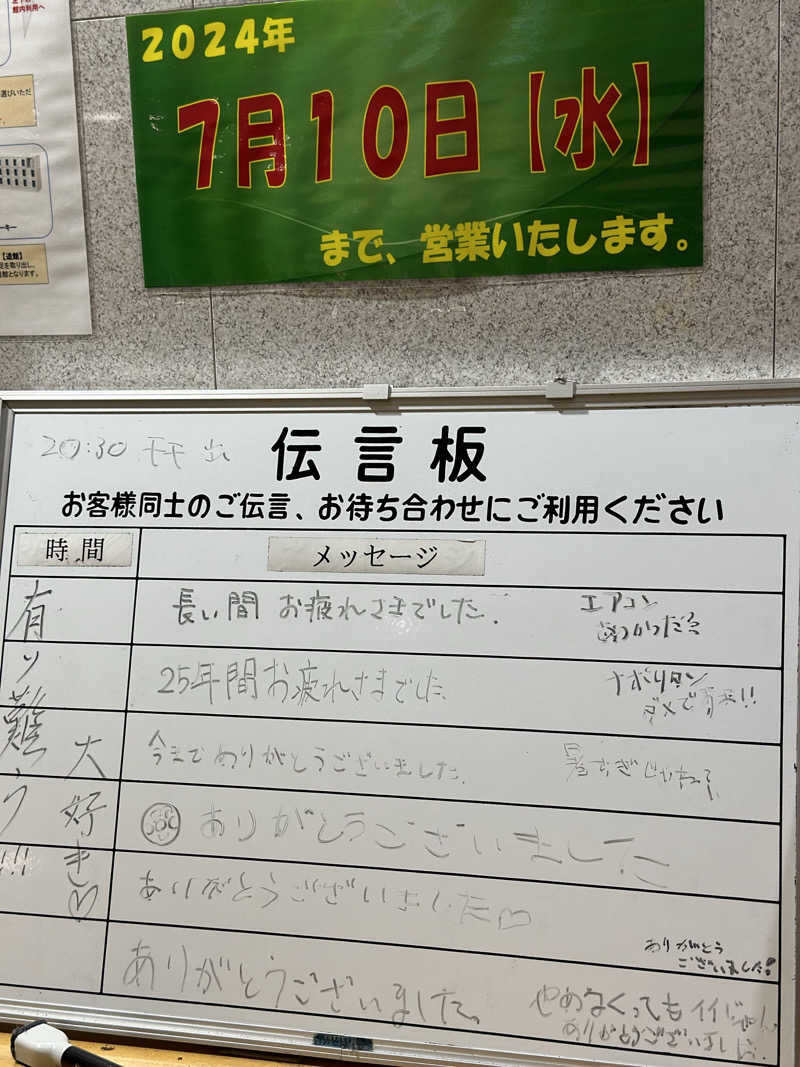 館内利用へ
選びいただ
ーキー
【退館】
足を取り出し、
館となります。
2024年
7月10日【水】
まで、営業いたします。
20:30
伝言板
お客様同士のご伝言、お待ち合わせにご利用ください
時間
メッセージ
有り難う!!
大好き♡
長い間 お疲れさまでした.
エアコン
25年間お疲れさまでした
ナポリタン
今までありがとうございました.
暑すぎじゃね?
ありがとうございました
ありがとうございました♡
ありがとう
ございました!
ありがとうございました。
やめなくってもイイじゃん
ありがとうございました.